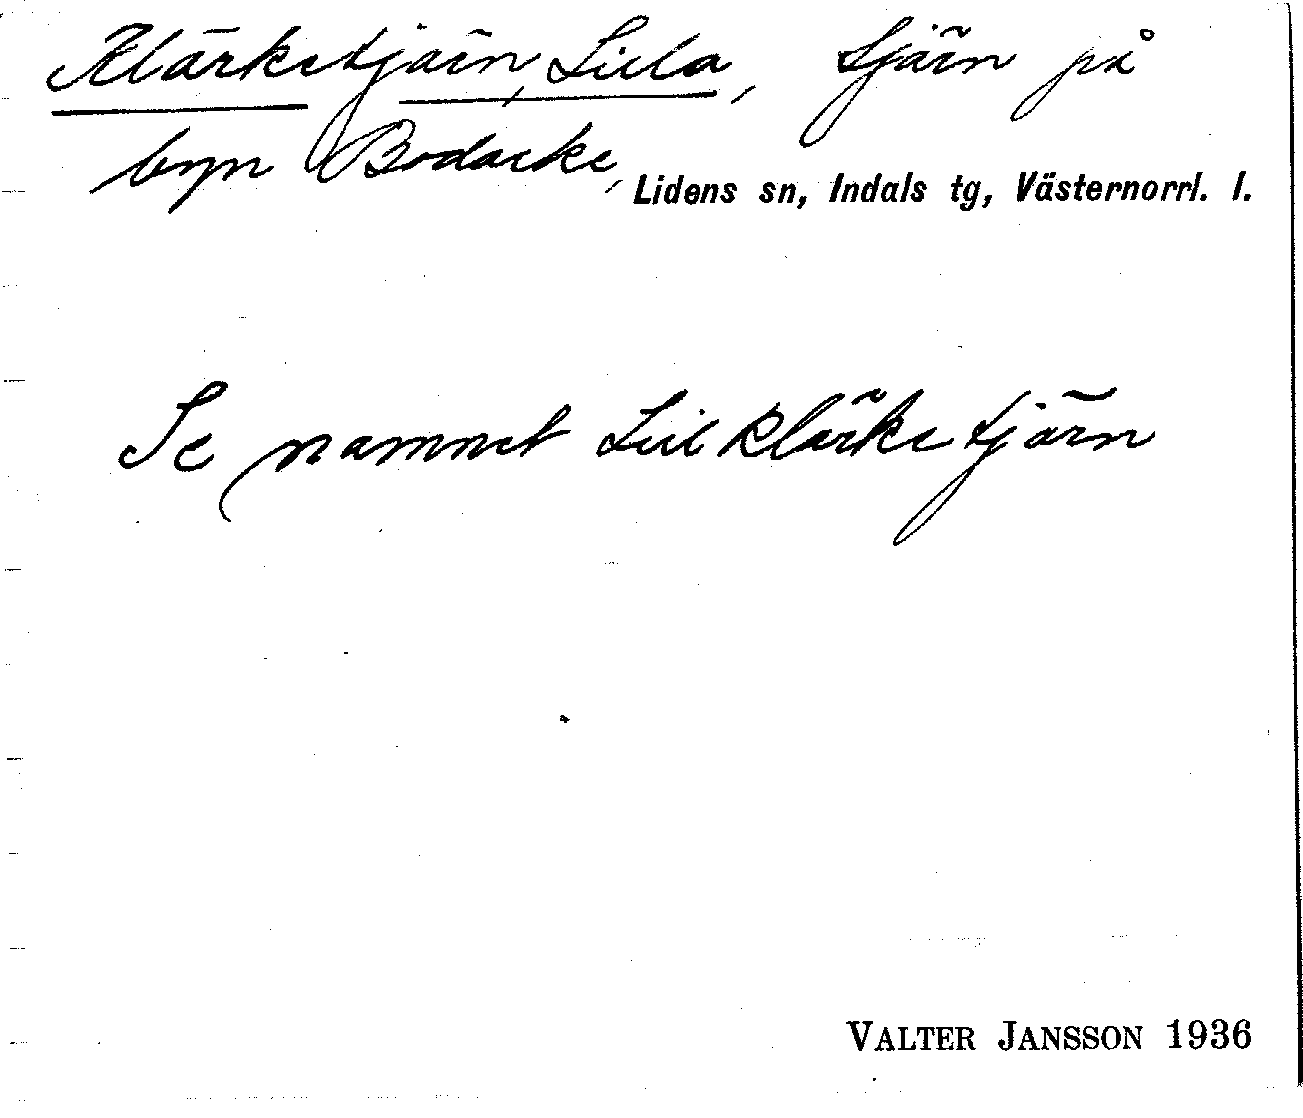 Klärketjärn, Lilla, tjärn på
byn Bodacke, Lidens sn, Indals tg, Västernorrl. l.
Se namnet Lill Klärketjärn
VALTER JANSSON 1936